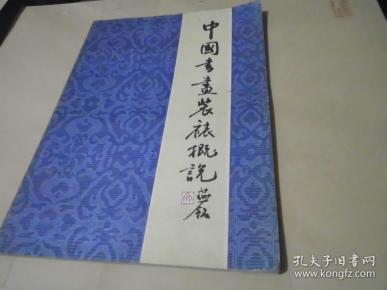 中國书畫装裱概說
燕銘
孔夫子旧书网
www.kongfz.com